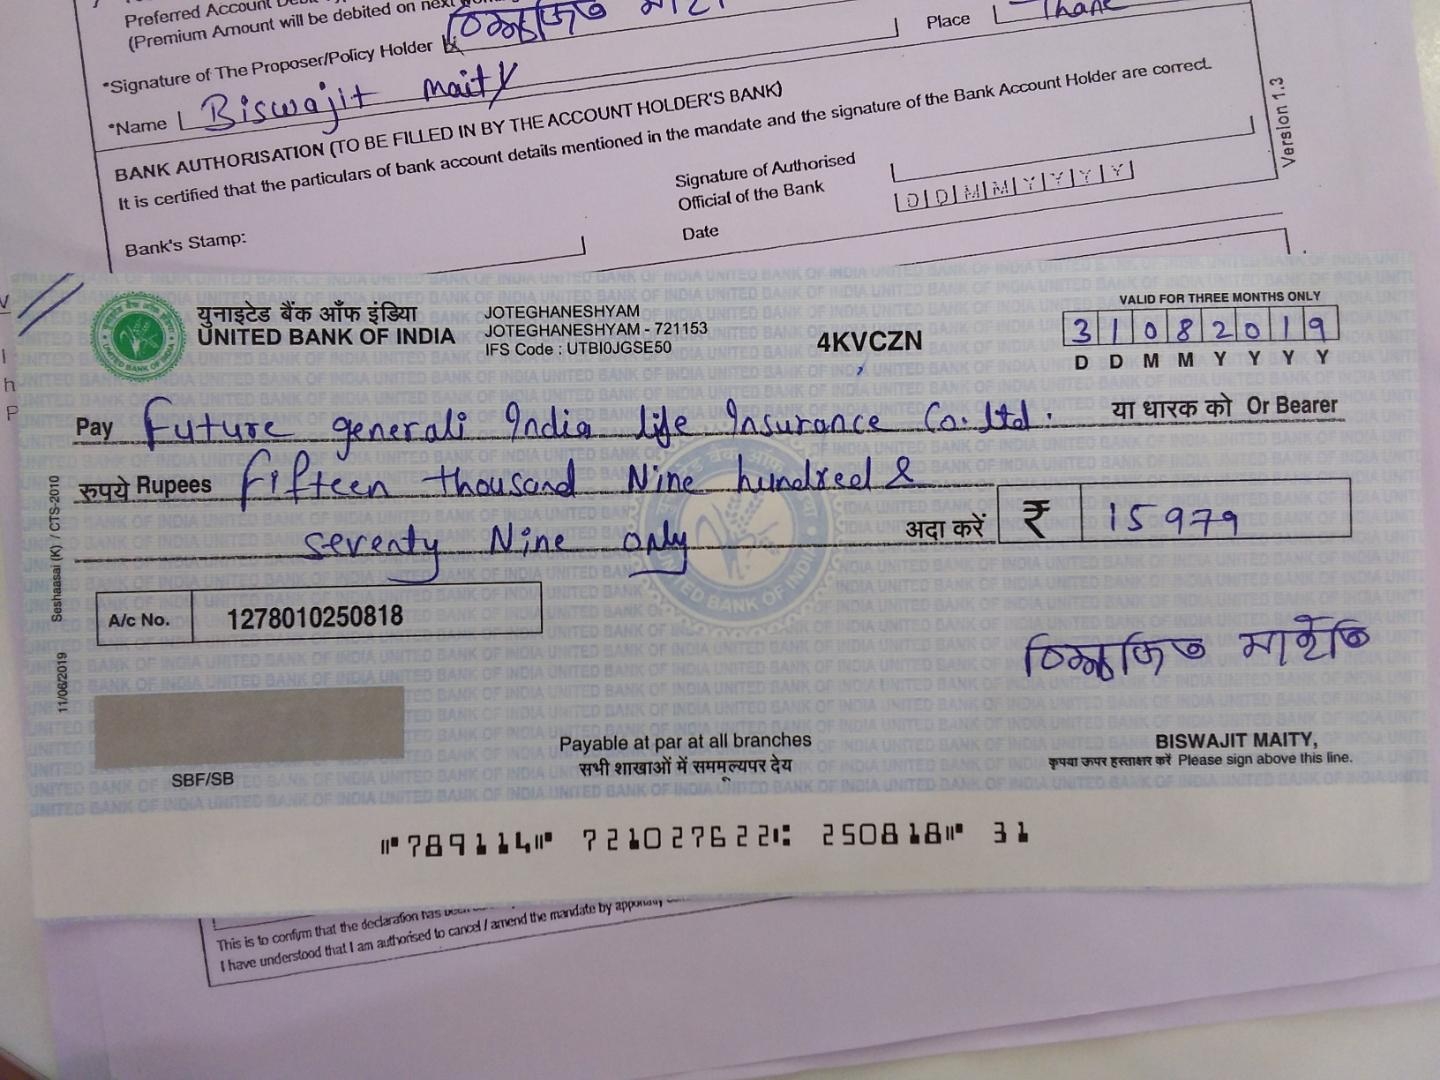 Preferred Account
(Premium Amount will be debited on next
*Signature of The Proposer/Policy Holder
Place Thane
*Name Biswajit Maity
BANK AUTHORISATION (TO BE FILLED IN BY THE ACCOUNT HOLDER'S BANK)
It is certified that the particulars of bank account details mentioned in the mandate and the signature of the Bank Account Holder are correct.
Signature of Authorised
Official of the Bank
Bank's Stamp:
Date D D M M Y Y Y Y
Version 1.3
युनाइटेड बैंक ऑफ इंडिया
UNITED BANK OF INDIA
JOTEGHANESHYAM
JOTEGHANESHYAM - 721153
IFS Code : UTBI0JGSE50
4KVCZN
VALID FOR THREE MONTHS ONLY
3 1 0 8 2 0 1 9
D D M M Y Y Y Y
Pay Future generali India life Insurance Co. ltd. या धारक को Or Bearer
रुपये Rupees fifteen thousand Nine hundred &
seventy Nine only अदा करें ₹ 15979
A/c No. 1278010250818
Seshaasai (K) / CTS-2010
11/06/2019
বিশ্বজিত মাইতি
SBF/SB
Payable at par at all branches
सभी शाखाओं में सममूल्यपर देय
BISWAJIT MAITY,
कृपया ऊपर हस्ताक्षर करें Please sign above this line.
⑈789114⑈ 721027622⑆ 250818⑈ 31
This is to confirm that the declaration has been
I have understood that I am authorised to cancel / amend the mandate by